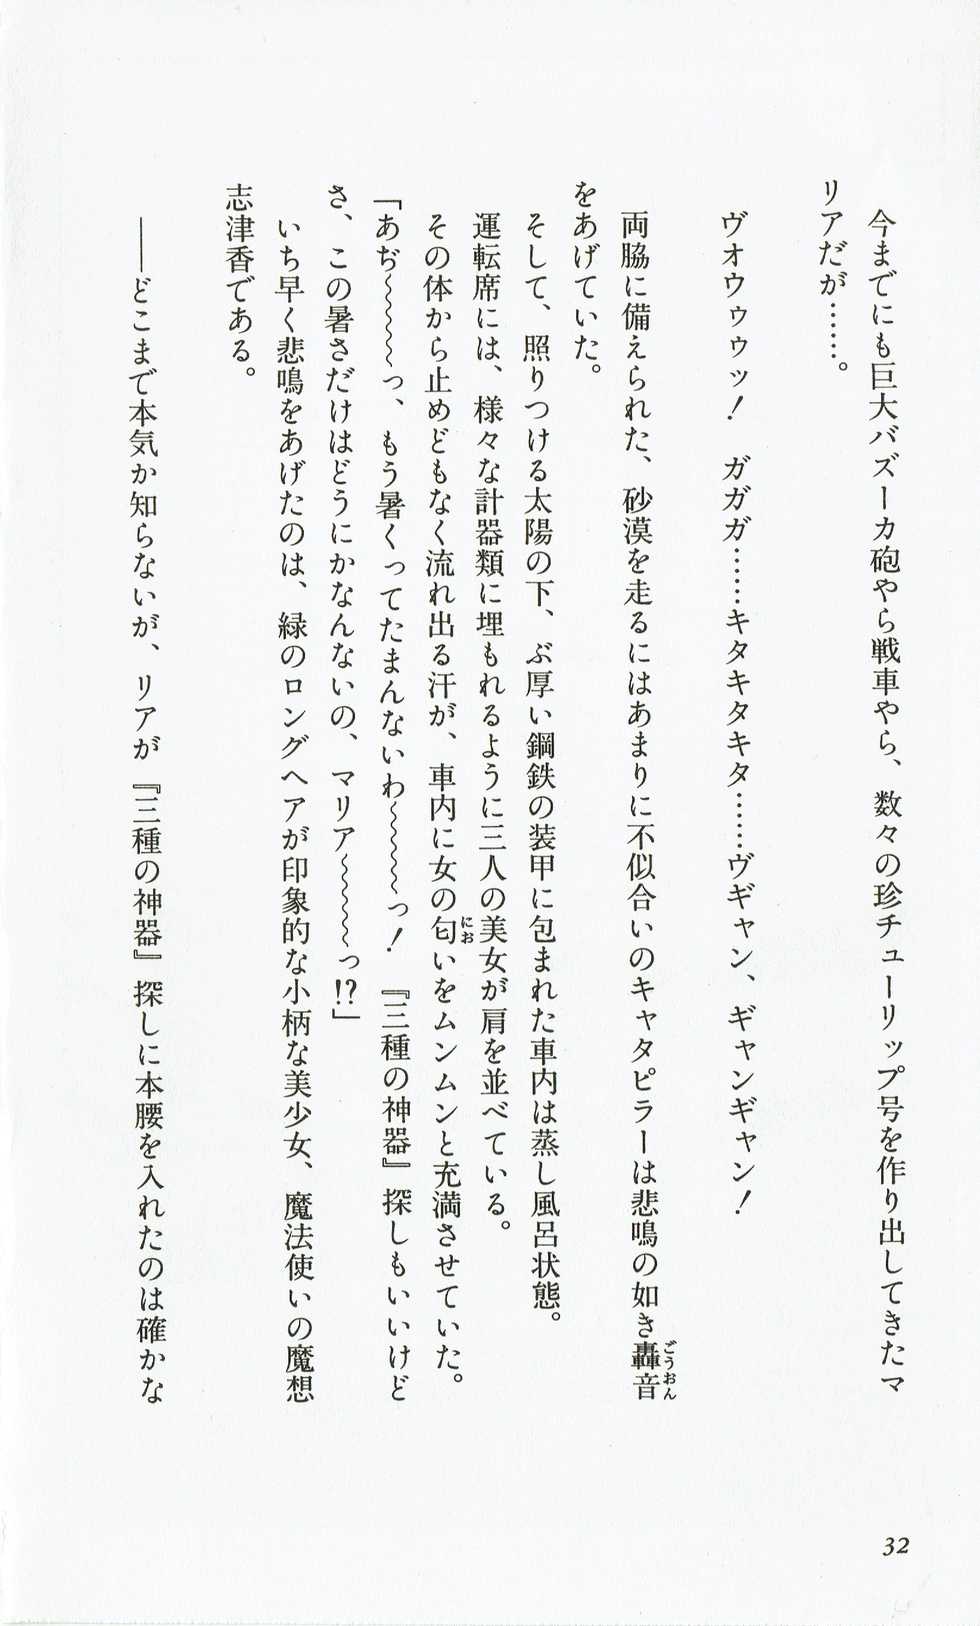 今までにも巨大バズーカ砲やら戦車やら、数々の珍チューリップ号を作り出してきたマ
リアだが……。
ヴオウゥゥッ！　ガガガ……キタキタキタ……ヴギャン、ギャンギャン！
両脇に備えられた、砂漠を走るにはあまりに不似合いのキャタピラーは悲鳴の如き轟音
ごうおん
をあげていた。
そして、照りつける太陽の下、ぶ厚い鋼鉄の装甲に包まれた車内は蒸し風呂状態。
運転席には、様々な計器類に埋もれるように三人の美女が肩を並べている。
その体から止めどもなく流れ出る汗が、車内に女の匂いをムンムンと充満させていた。
にお
「あぢ〜〜〜〜っ、もう暑くってたまんないわ〜〜〜〜っ！　『三種の神器』探しもいいけど
さ、この暑さだけはどうにかなんないの、マリア〜〜〜〜っ!?」
いち早く悲鳴をあげたのは、緑のロングヘアが印象的な小柄な美少女、魔法使いの魔想
志津香である。
――どこまで本気か知らないが、リアが『三種の神器』探しに本腰を入れたのは確かな
32